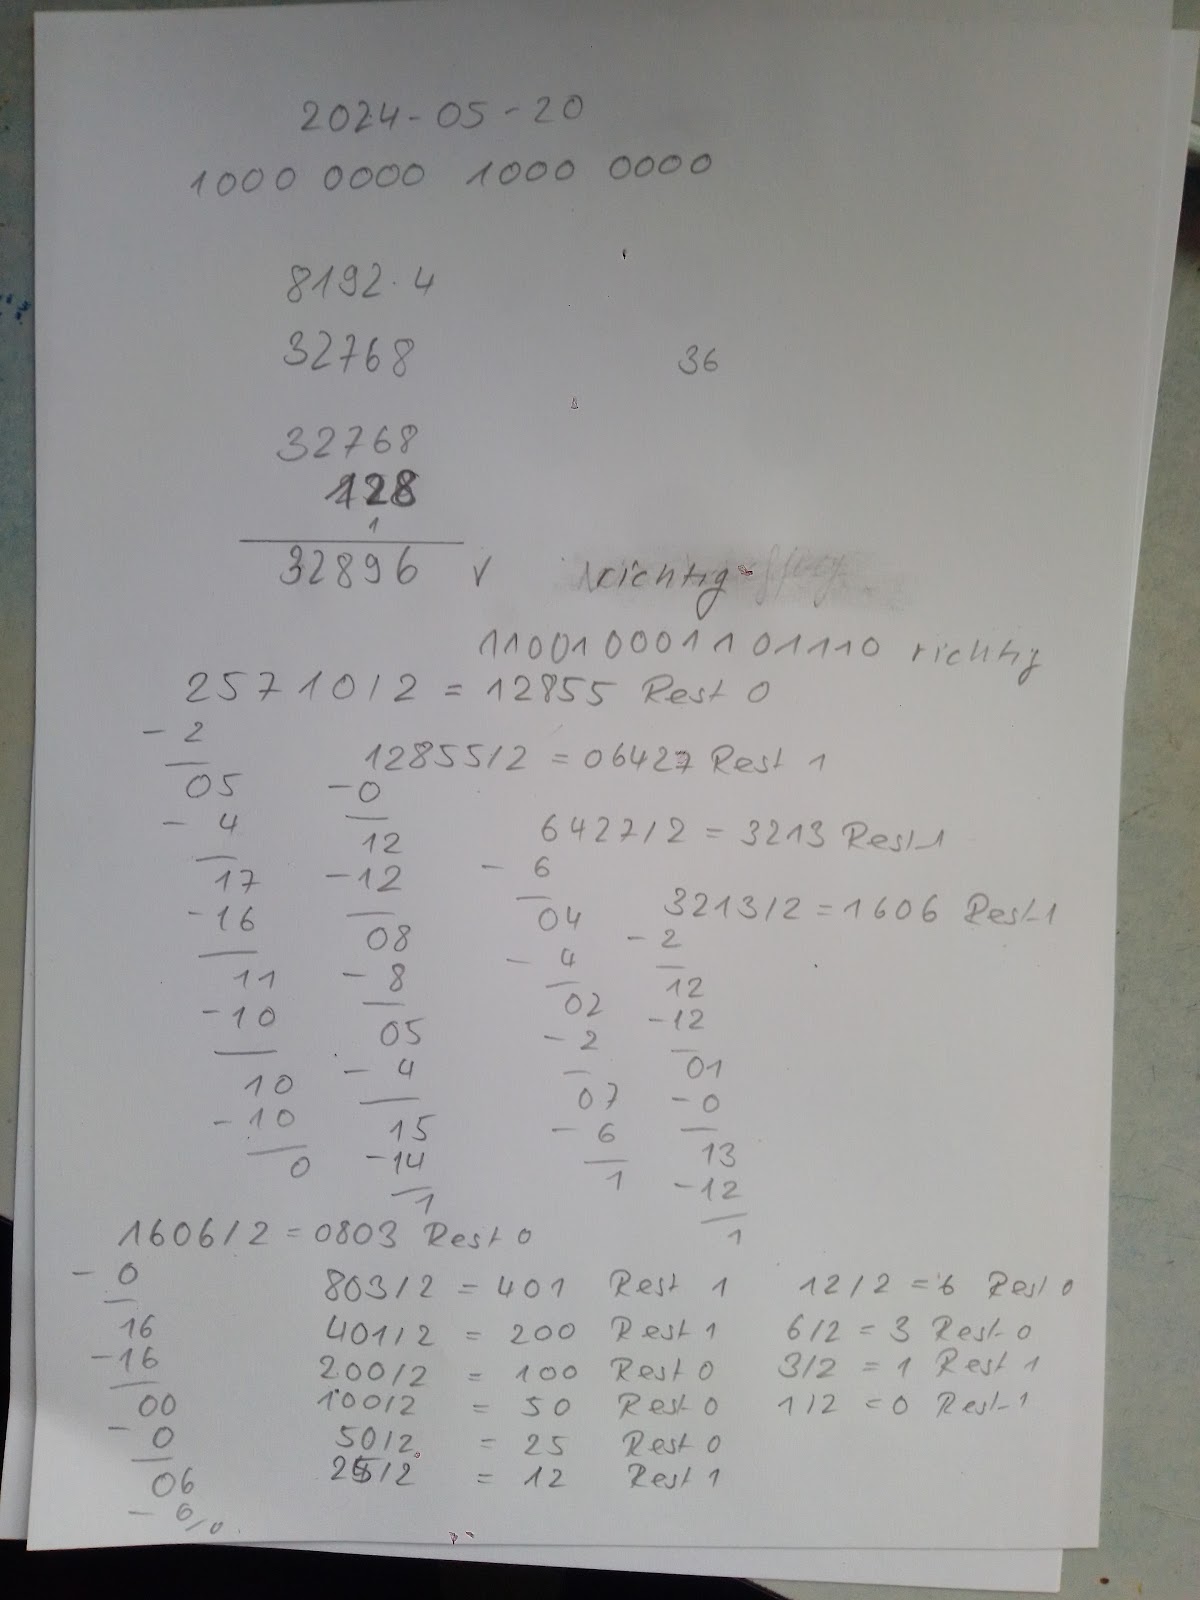 2024-05-20
1000 0000 1000 0000
8192·4
32768
36
32768
128
1
32896 √ richtig
1100100011 01110 richtig
25710/2 = 12855 Rest 0
- 2
05
- 4
17
-16
11
-10
10
-10
0
12855/2 = 06427 Rest 1
-0
12
-12
08
- 8
05
- 4
15
-14
1
6427/2 = 3213 Rest 1
- 6
04
- 4
02
- 2
07
- 6
1
3213/2 = 1606 Rest 1
- 2
12
-12
01
- 0
13
-12
1
1606/2 = 0803 Rest 0
- 0
16
-16
00
- 0
06
- 6
0
803/2 = 401 Rest 1
401/2 = 200 Rest 1
200/2 = 100 Rest 0
100/2 = 50 Rest 0
50/2 = 25 Rest 0
25/2 = 12 Rest 1
12/2 = 6 Rest 0
6/2 = 3 Rest 0
3/2 = 1 Rest 1
1/2 = 0 Rest 1